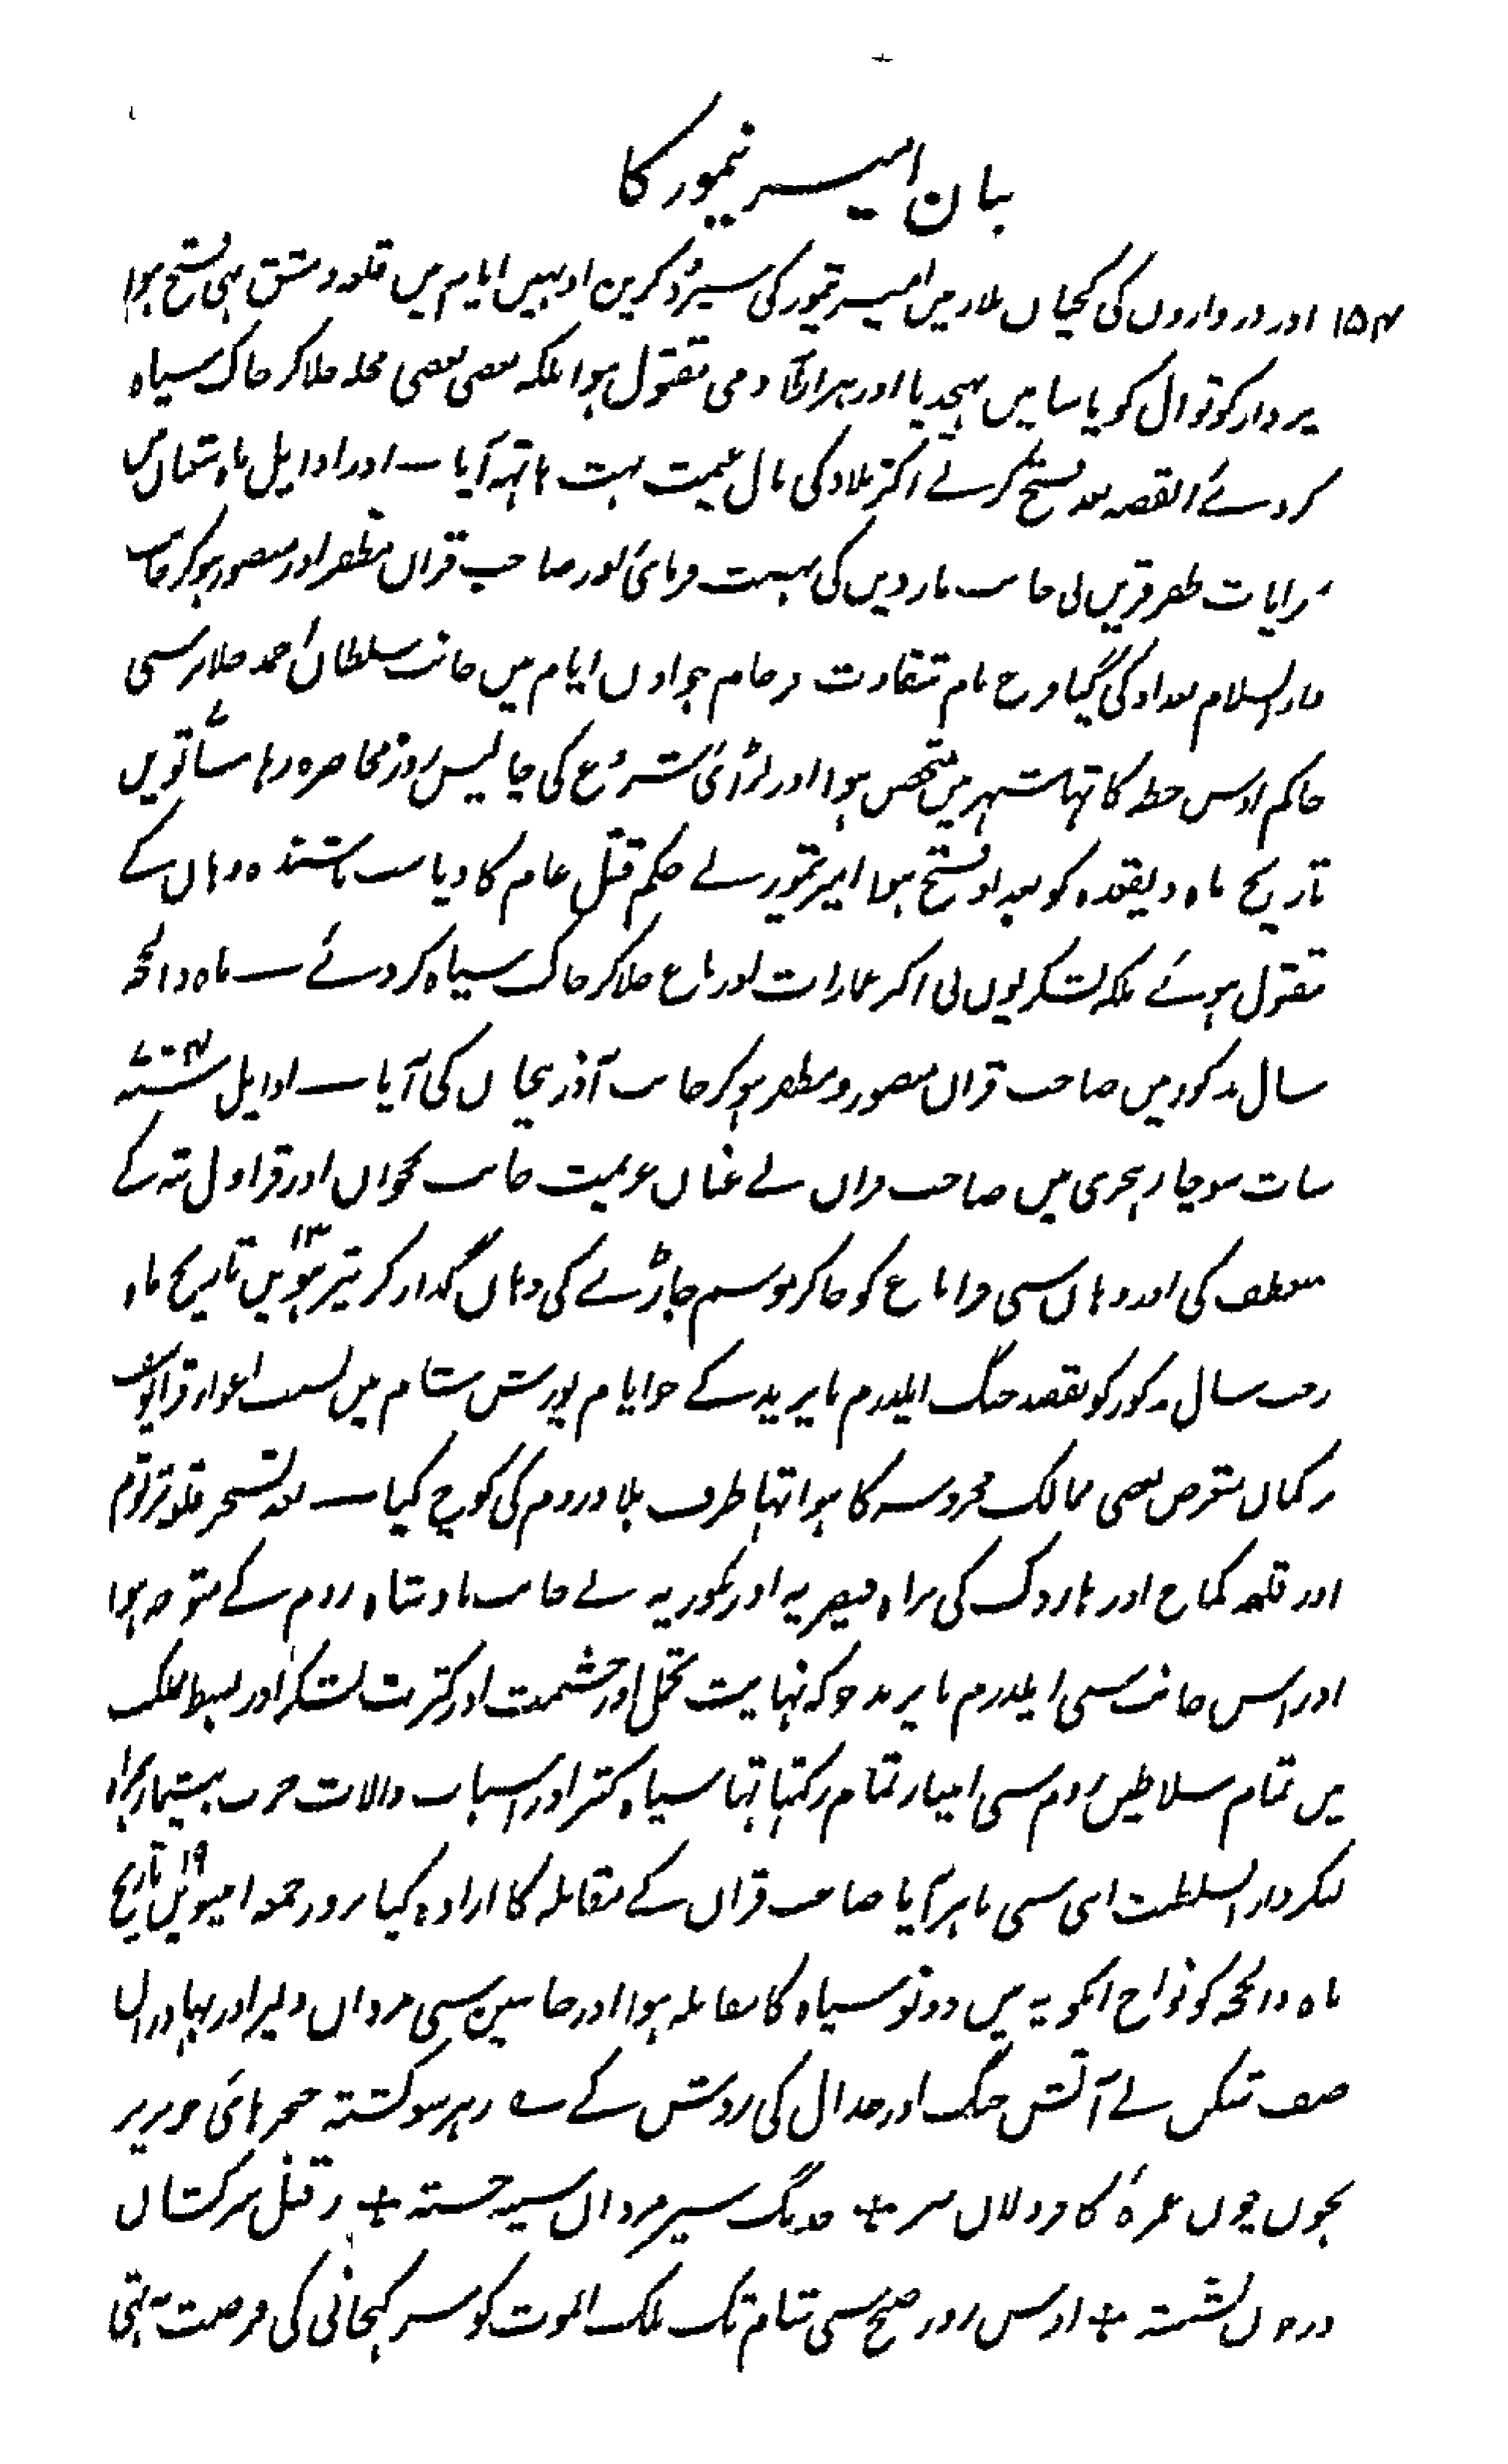 بیان امیر تیمور کا
۱۵۴ اور دروازوں کی کنجیاں ملازمین امیر تیمور کی سپرد کرین اونہیں ایام میں قلعہ دمشق بہی فتح ہوا
یزدار کوتوال کو یاسا میں بہیجدیا اور ہزارہا آدمی مقتول ہوا بلکہ بعضی بعضی محلہ جلا کر خاک سیاہ
کردئے القصہ بعد فتح کرنے اکثر بلاد کی مال غنیمت بہت ہاتہہ آیا ۔ اور اوایل ماہ شعبان میں
رایات ظفر قرین نی جانب ماردین کی نہضت فرمائی اور صاحب قران مظفر اور منصور ہوکر جانب
دارالسلام بغداد کی گیا فرخ نام شقاوت فرجام جو اون ایام میں جانب سلطان احمد جلایر سی
حاکم اوس خطہ کا تہا شہر میں متحصن ہوا اور لڑائی شروع کی چالیس روز محاصرہ رہا ساتویں ۷
تاریخ ماہ ذیقعدہ کو بغداد فتح ہوا امیر تیمور نے حکم قتل عام کا دیا سب باشندہ وہاں کے
مقتول ہوئے بلکہ لشکریوں نی اکثر عمارات اور باغ جلا کر خاک سیاہ کردئے ۔ ماہ ذالحجہ
سال مذکور میں صاحب قران منصور و مظفر ہوکر جانب آذربیجان کی آیا ۔ اوایل سنہ ۷۰۴
سات سو چار ہجری میں صاحب قران نے عنان عزیمت جانب نخجوان اور قراول تہ کے
منعطف کی اور وہاں سی قراباغ کو جاکر موسم جاڑے کی وہاں گذار کر تیرہویں ۱۳ تاریخ ماہ
رجب سال مذکور کو بقصد جنگ ایلدرم بایزید کے جو ایام یورش شام میں بسبب اغوار قرایوسف
ترکمان متعرض بعضی ممالک محروسہ کا ہوا تہا طرف بلاد روم کی کوچ کیا ۔ بعد تسخیر قلعہ ترتوم
اور قلعہ کماخ اور ہاروک کی براہ قیصریہ اور نکوریہ نے جانب بادشاہ روم کے متوجہ ہوا
اور اس جانب سی ایلدرم بایزید جو کہ نہایت تجمل اور حشمت اور کثرت لشکر اور بسط ملک
میں تمام سلاطین روم سی امتیاز تمام رکہتا تہا سپاہ کثیر اور اسباب والات حرب بیشمار ہمراہ
لیکر دارالسلطنت اپنی سی باہر آیا صاحب قران کے مقابلہ کا ارادہ کیا بروز جمعہ اونیسویں ۱۹ تاریخ
ماہ ذالحجہ کو نواح انکوریہ میں دونو سپاہ کا مقابلہ ہوا اور جانبین سی مردان دلیر اور بہادران
صف شکن نے آتش جنگ اور جدال کی روشن کے ۔ زہر سو کشتہ خنجرہائی خونریز
بخون چون غمزۂ کافر دلان سر + خدنگ سیر مردان سینہ خستہ + ز قتل سرکشان
در خون نشستہ + اوس روز صبح سی شام تک ملک الموت کو سر کہجانی کی فرصت نہ تہی